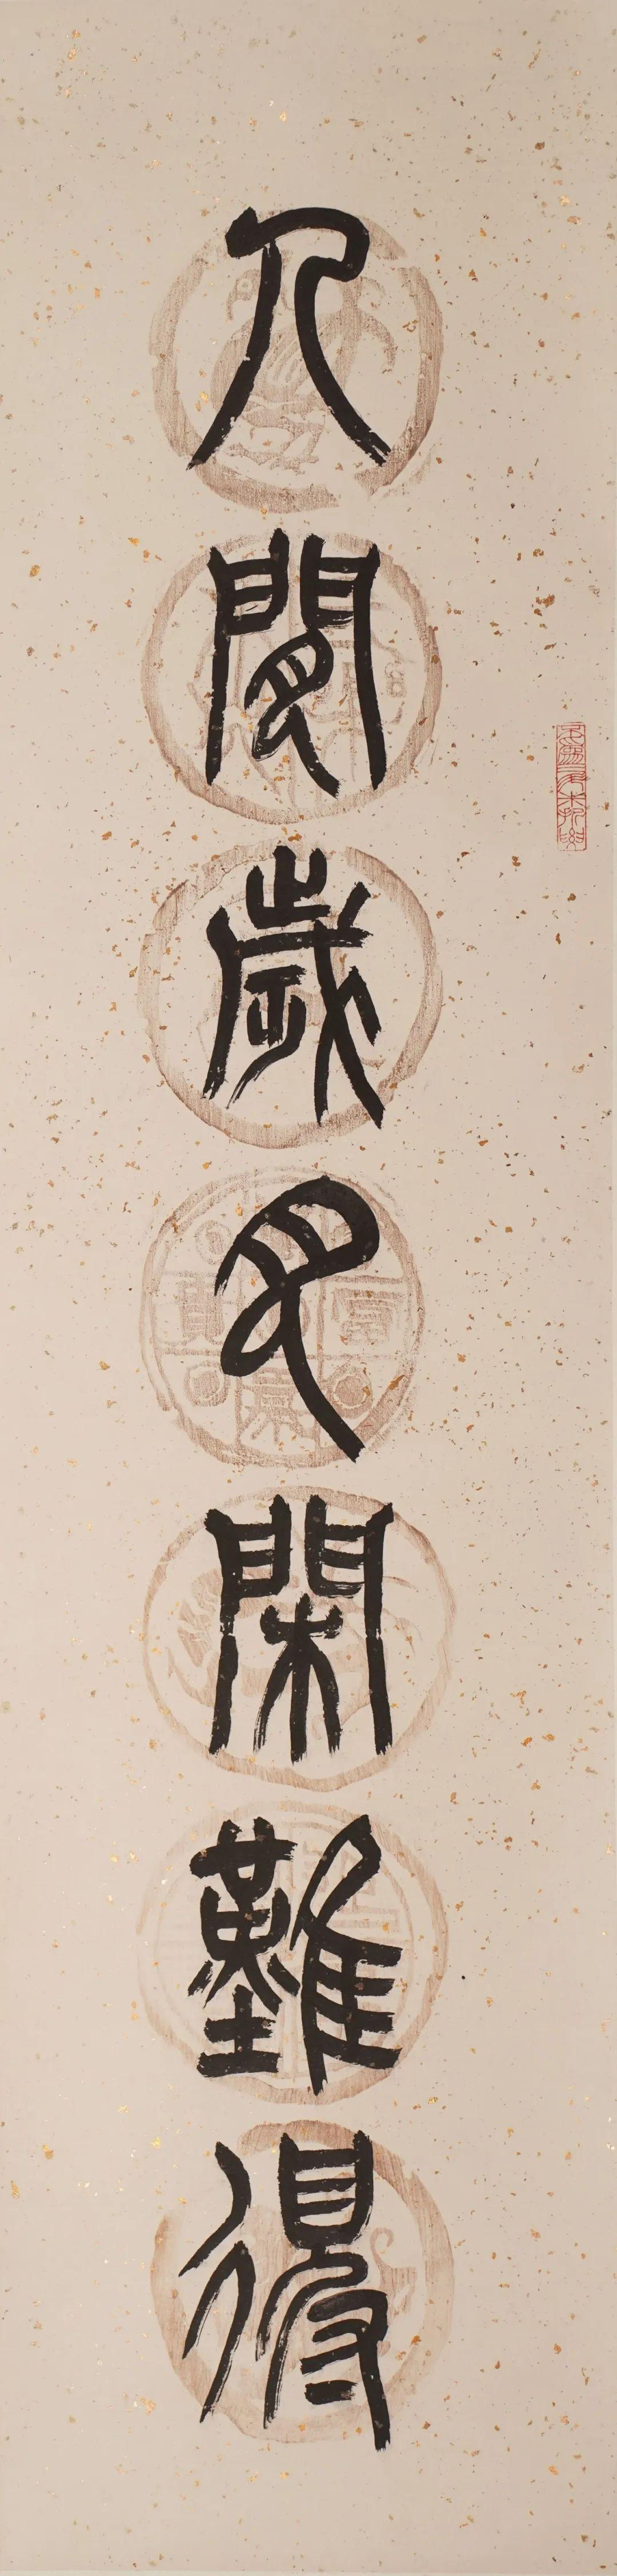 人間歲月閑難得